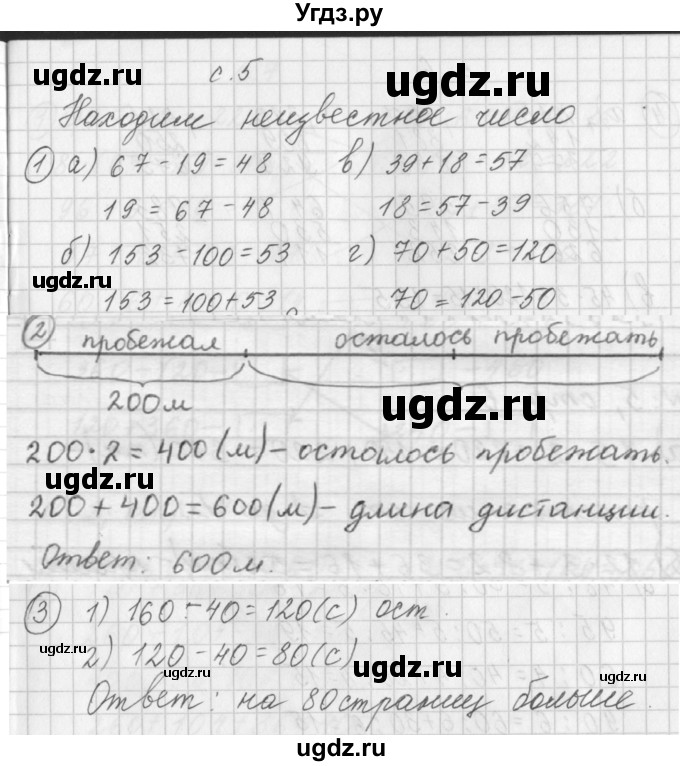 Угдз.ру
ugdz.ru
с. 5
ugdz.ru
Находим неизвестное число
1 а) 67 - 19 = 48 в) 39 + 18 = 57
19 = 67 - 48 18 = 57 - 39
б) 153 - 100 = 53 г) 70 + 50 = 120
ugdz.ru
153 = 100 + 53 70 = 120 - 50
2 пробежал осталось пробежать
200м
ugdz.ru
200 · 2 = 400 (м) - осталось пробежать.
ugdz.ru
200 + 400 = 600 (м) - длина дистанции.
Ответ: 600 м.
3 1) 160 - 40 = 120 (с) ост.
2) 120 - 40 = 80 (с)
ugdz.ru
ugdz.ru
ugdz.ru
Ответ: на 80 страниц больше.
ugdz.ru